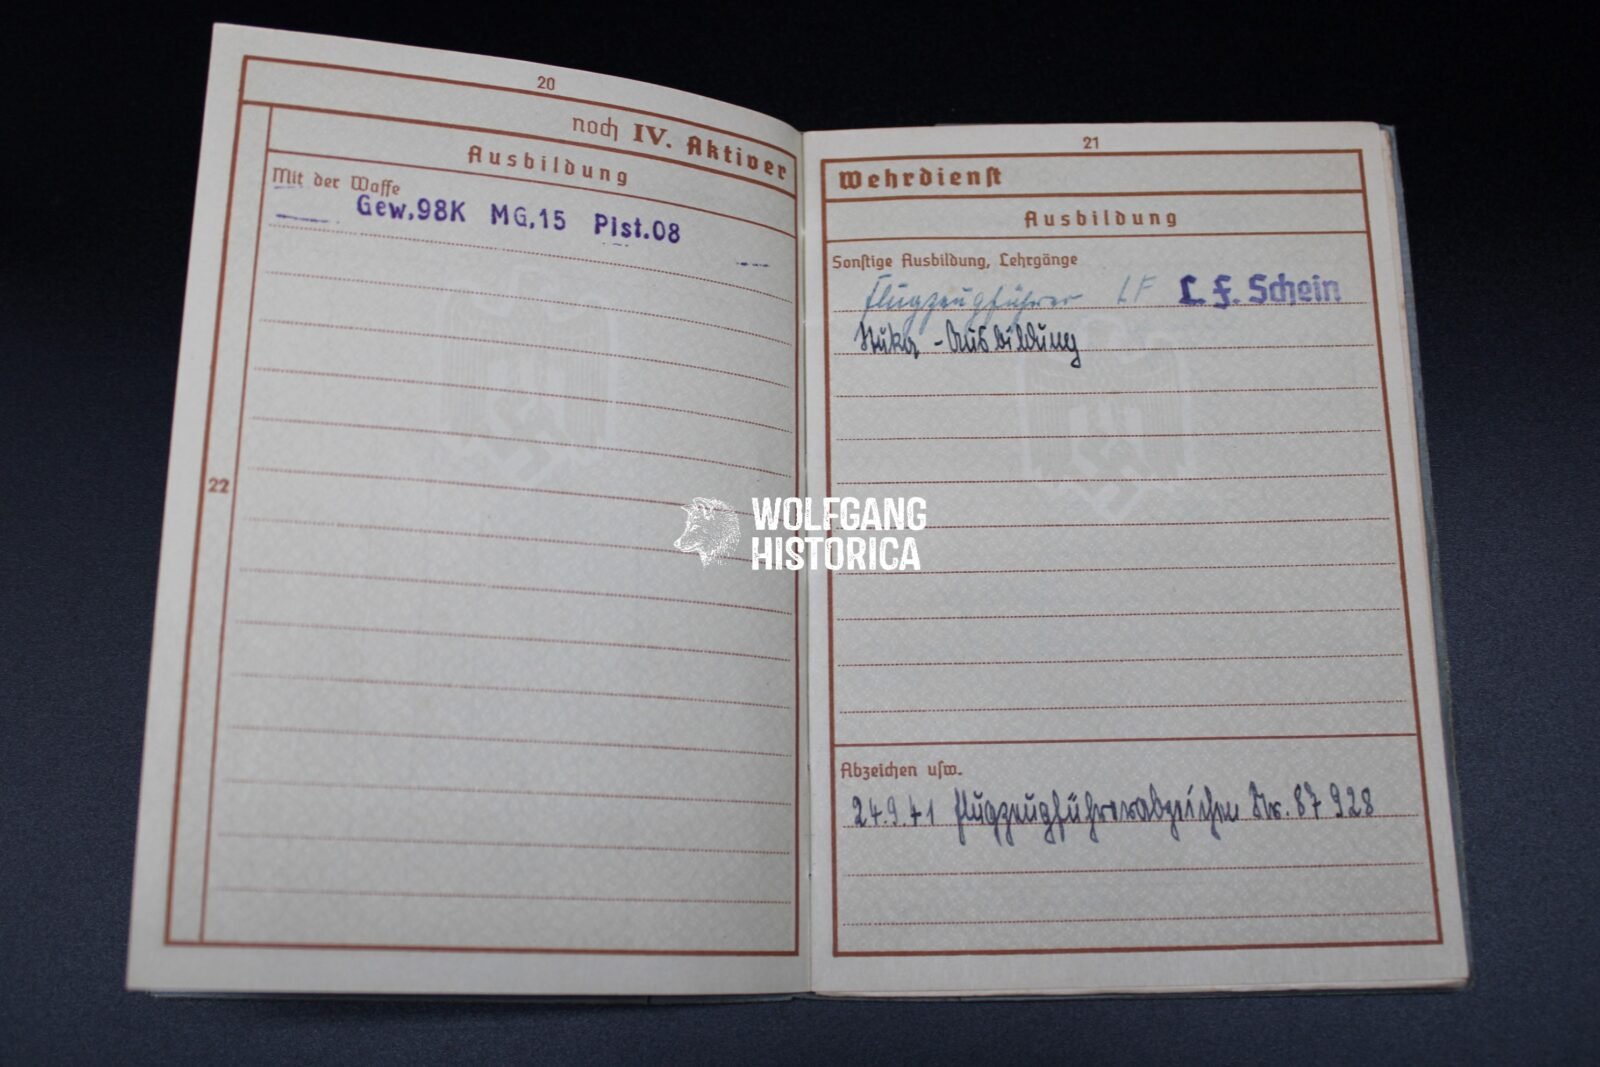 20
noch IV. Aktiver
Ausbildung
Mit der Waffe
Gew.98K MG.15 Pist.08
22
21
Wehrdienst
Ausbildung
Sonstige Ausbildung, Lehrgänge
Flugzeugführer LF L. F. Schein
Stuka - Ausbildung
WOLFGANG
HISTORICA
Abzeichen usw.
24.9.41 Flugzeugführerabzeichen Nr. 87 928